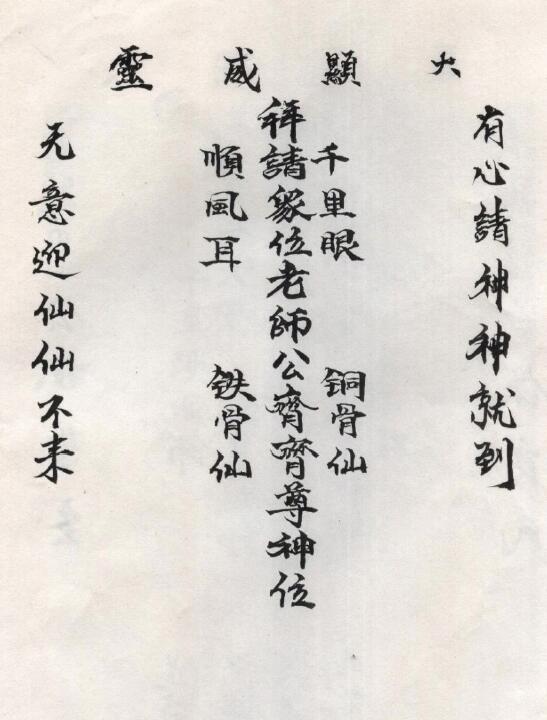 火顯威靈
有心請神神就到
千里眼
銅骨仙
拜請衆位老師公齊齊尊神位
順風耳
鉄骨仙
无意迎仙仙不来